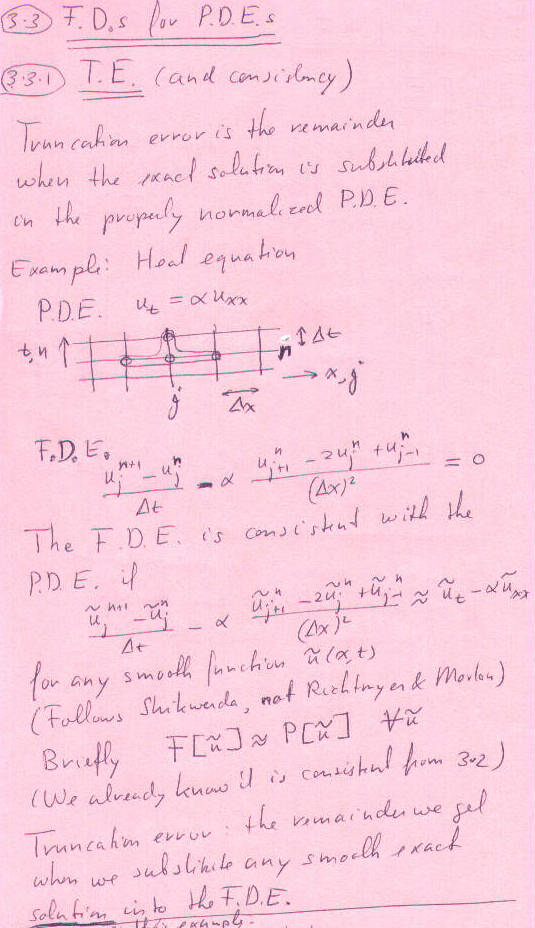 3.3 F.D.s for P.D.E.s
3.3.1 T.E. (and consistency)
Truncation error is the remainder
when the exact solution is substituted
in the properly normalized P.D.E.
Example: Heat equation
P.D.E. u_t = α u_xx
t, n ↑ n ↕ Δt
→ x, j
j Δx
F.D.E. (u_j^{n+1} - u_j^n)/Δt - α (u_{j+1}^n - 2u_j^n + u_{j-1}^n)/(Δx)² = 0
The F.D.E. is consistent with the
P.D.E. if
(ũ_j^{n+1} - ũ_j^n)/Δt - α (ũ_{j+1}^n - 2ũ_j^n + ũ_{j-1}^n)/(Δx)² ≈ ũ_t - αũ_xx
for any smooth function ũ(x,t)
(Follows Strikwerda, not Richtmyer & Morton)
Briefly F[ũ] ≈ P[ũ] ∀ũ
(We already know it is consistent from 3.2)
Truncation error: the remainder we get
when we substitute any smooth exact
solution into the F.D.E.
this example.